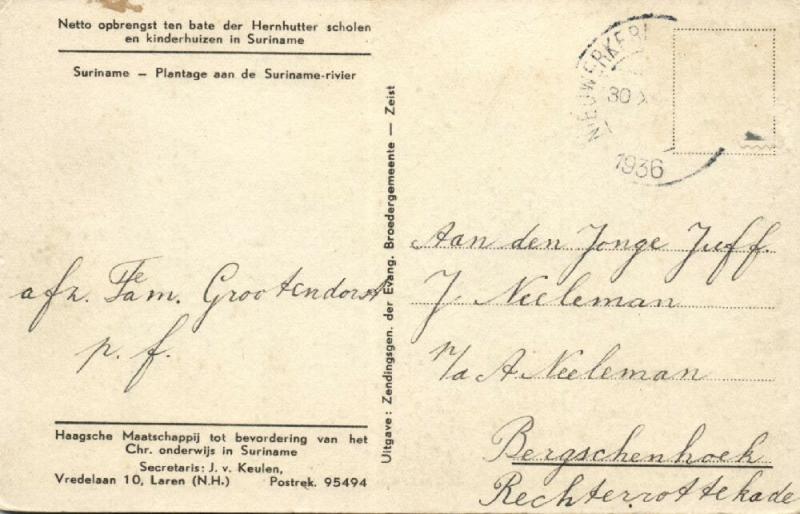 Netto opbrengst ten bate der Hernhutter scholen
en kinderhuizen in Suriname
Suriname — Plantage aan de Suriname-rivier
afz. Fam. Grootendorst
p. f.
Haagsche Maatschappij tot bevordering van het
Chr. onderwijs in Suriname
Secretaris: J. v. Keulen,
Vredelaan 10, Laren (N.H.) Postrek. 95494
Uitgave: Zendingsgen. der Evang. Broedergemeente — Zeist
NIEUWERKERK
30 X
1936
Aan den Jonge Juff.
J. Neeleman
p/a A. Neeleman
Bergschenhoek
Rechterrottekade